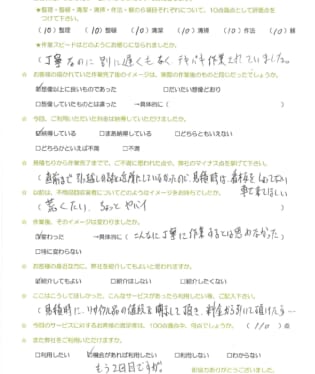 ●整理・整頓・清潔・清掃・作法・躾の5項目それぞれについて、10点満点として評価点をつけて下さい。
(10)整理 (10)整頓 (10)清潔 (10)清掃 (10)作法 (10)躾
●作業スピードはどのようにお感じになられましたか。
(丁寧なのに別に遅くもなくテキパキ作業されていました。
お客様の描かれていた作業完了後のイメージは、実際の作業後のものと同じだったでしょうか。
☑想像以上に良いものであった □だいたい想像どおり
□想像していたものとは違った →具体的に(
今回、ご利用いただいた料金は納得していただけましたか。
☑納得している □まあ納得している □どちらともいえない
□どちらかといえば不満 □不満
見積もりから作業完了までで、ご不満に思われた点や、弊社のマイナス点を挙げて下さい。
以前は、不用品回収業者についてどのようなイメージをお持ちでしたか。
作業後、そのイメージは変わりましたか。
☑変わった →具体的に(こんなに丁寧に作業するとは思わなかった)
□特に変わらない
お客様の身近な方に、弊社を紹介してもよいと思われますか。
☑紹介してもよい □紹介はしない □紹介したくない
ここはこうしてほしかった、こんなサービスがあったら利用したい等、ご記入下さい。
今回のサービスに対するお客様の満足度は、100点満点中、何点でしょうか。(110)点
また弊社をご利用いただけますか。
□利用したい ☑機会があれば利用したい □利用しない □わからない
もう2回目ですが。
ご協力ありがとうございました。